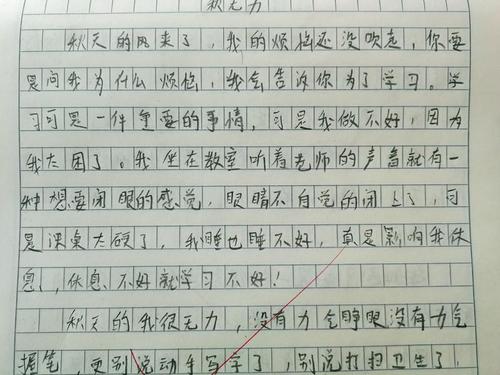 秋无力
秋天的风来了，我的烦恼还没吹走，你要
是问我为什么烦恼，我会告诉你为了学习。学
习可是一件重要的事情，可是我做不好，因为
我太困了。我坐在教室听着老师的声音就有一
种想要闭眼的感觉，眼睛不自觉的闭上了，可
是课桌太硬了，我睡也睡不好，真是影响我休
息，休息不好就学习不好！
秋天的我很无力，没有力气睁眼没有力气
握笔，更别说动手写字了，别说打扫卫生了，